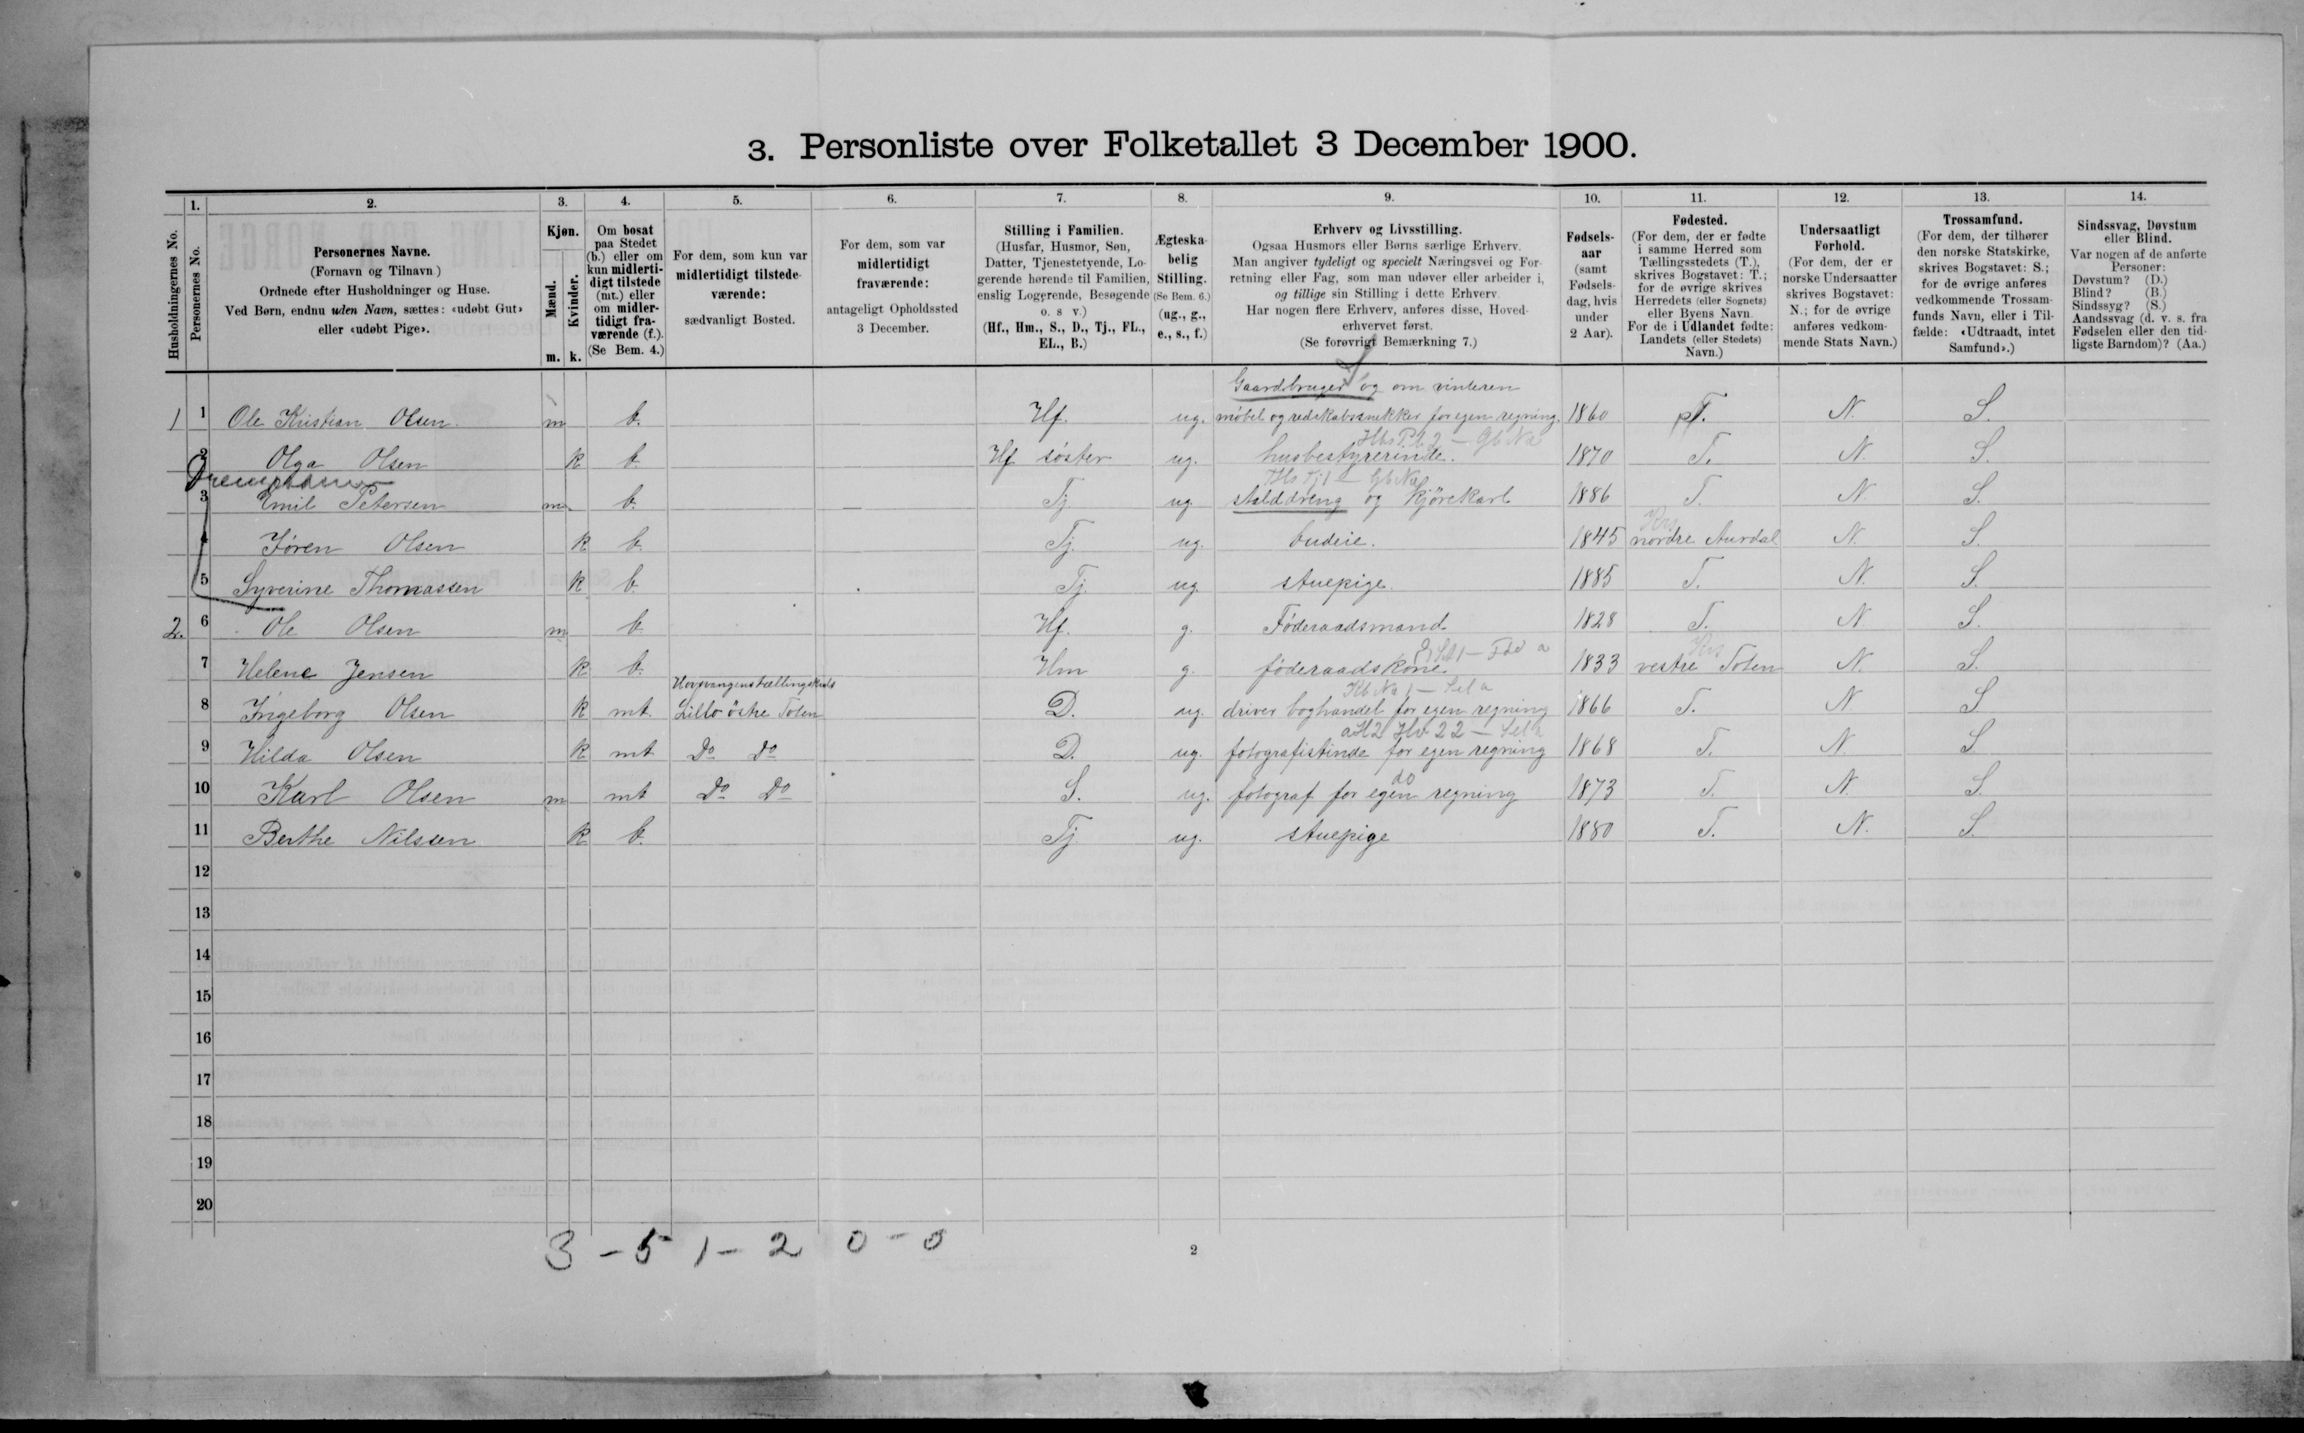 3. Personliste over Folketallet 3 December 1900.
1. 2. 3. 4. 5. 6. 7. 8. 9. 10. 11. 12. 13. 14.
Husholdningernes No.
Personernes No.
Personernes Navne.
(Fornavn og Tilnavn.)
Ordnede efter Husholdninger og Huse.
Ved Børn, endnu uden Navn, sættes: «udøbt Gut»
eller «udøbt Pige».
Kjøn.
Mænd.
Kvinder.
m. k.
Om bosat
paa Stedet
(b.) eller om
kun midlerti-
digt tilstede
(mt.) eller
om midler-
tidigt fra-
værende (f.).
(Se Bem. 4.)
For dem, som kun var
midlertidigt tilstede-
værende:
sædvanligt Bosted.
For dem, som var
midlertidigt
fraværende:
antageligt Opholdssted
3 December.
Stilling i Familien.
(Husfar, Husmor, Søn,
Datter, Tjenestetyende, Lo-
gerende hørende til Familien,
enslig Logerende, Besøgende
o. s v.)
(Hf., Hm., S., D., Tj., FL.,
EL., B.)
Ægteska-
belig
Stilling.
(Se Bem. 6.)
(ug., g.,
e., s., f.)
Erhverv og Livsstilling.
Ogsaa Husmors eller Børns særlige Erhverv.
Man angiver tydeligt og specielt Næringsvei og For-
retning eller Fag, som man udøver eller arbeider i,
og tillige sin Stilling i dette Erhverv.
Har nogen flere Erhverv, anføres disse, Hoved-
erhvervet først.
(Se forøvrigt Bemærkning 7.)
Fødsels-
aar
(samt
Fødsels-
dag, hvis
under
2 Aar).
Fødested.
(For dem, der er fødte
i samme Herred som
Tællingsstedets (T.),
skrives Bogstavet: T.;
for de øvrige skrives
Herredets (eller Sognets)
eller Byens Navn.
For de i Udlandet fødte:
Landets (eller Stedets)
Navn.)
Undersaatligt
Forhold.
(For dem, der er
norske Undersaatter
skrives Bogstavet:
N.; for de øvrige
anføres vedkom-
mende Stats Navn.)
Trossamfund.
(For dem, der tilhører
den norske Statskirke,
skrives Bogstavet: S.;
for de øvrige anføres
vedkommende Trossam-
funds Navn, eller i Til-
fælde: «Udtraadt, intet
Samfund».)
Sindssvag, Døvstum
eller Blind.
Var nogen af de anførte
Personer:
Døvstum? (D.)
Blind? (B.)
Sindssyg? (S.)
Aandssvag (d. v. s. fra
Fødselen eller den tid-
ligste Barndom)? (Aa.)
Gaardsbruger og om vinteren
1 1 Ole Kristian Olsen m b. Hf. ug. møbel og redskabssnekker for egen regning. 1860 T. N. S.
2 Olga Olsen k b. Hf søster ug. husbestyrerinde. 1870 T. N. S.
3 Emil Petersen m b. Tj ug. stalddreng og kjørekarl 1886 T. N. S.
4 Jøren Olsen k b. Tj. ug. budeie. 1845 nordre Aurdal N. S.
5 Syverine Thomassen k b. Tj. ug. stuepige. 1885 T. N. S.
2. 6 Ole Olsen m b. Hf. g. Føderaadsmand 1828 T. N S.
7 Helene Jensen k b. Hm g. føderaadskone 1833 vestre Toten N. S.
8 Ingeborg Olsen k mt. Lillo östre Toten D. ug. driver boghandel for egen regning 1866 T. N. S
9 Hilda Olsen k mt Do Do D. ug. fotografistinde for egen regning 1868 T. N. S
10 Karl Olsen m mt Do Do S. ug. fotograf for egen regning 1873 T. N. S.
11 Berthe Nilssen k b. Tj. ug. stuepige 1880 T. N. S.
12
13
14
15
16
17
18
19
20
3 - 5 1 - 2 0 - 0
2